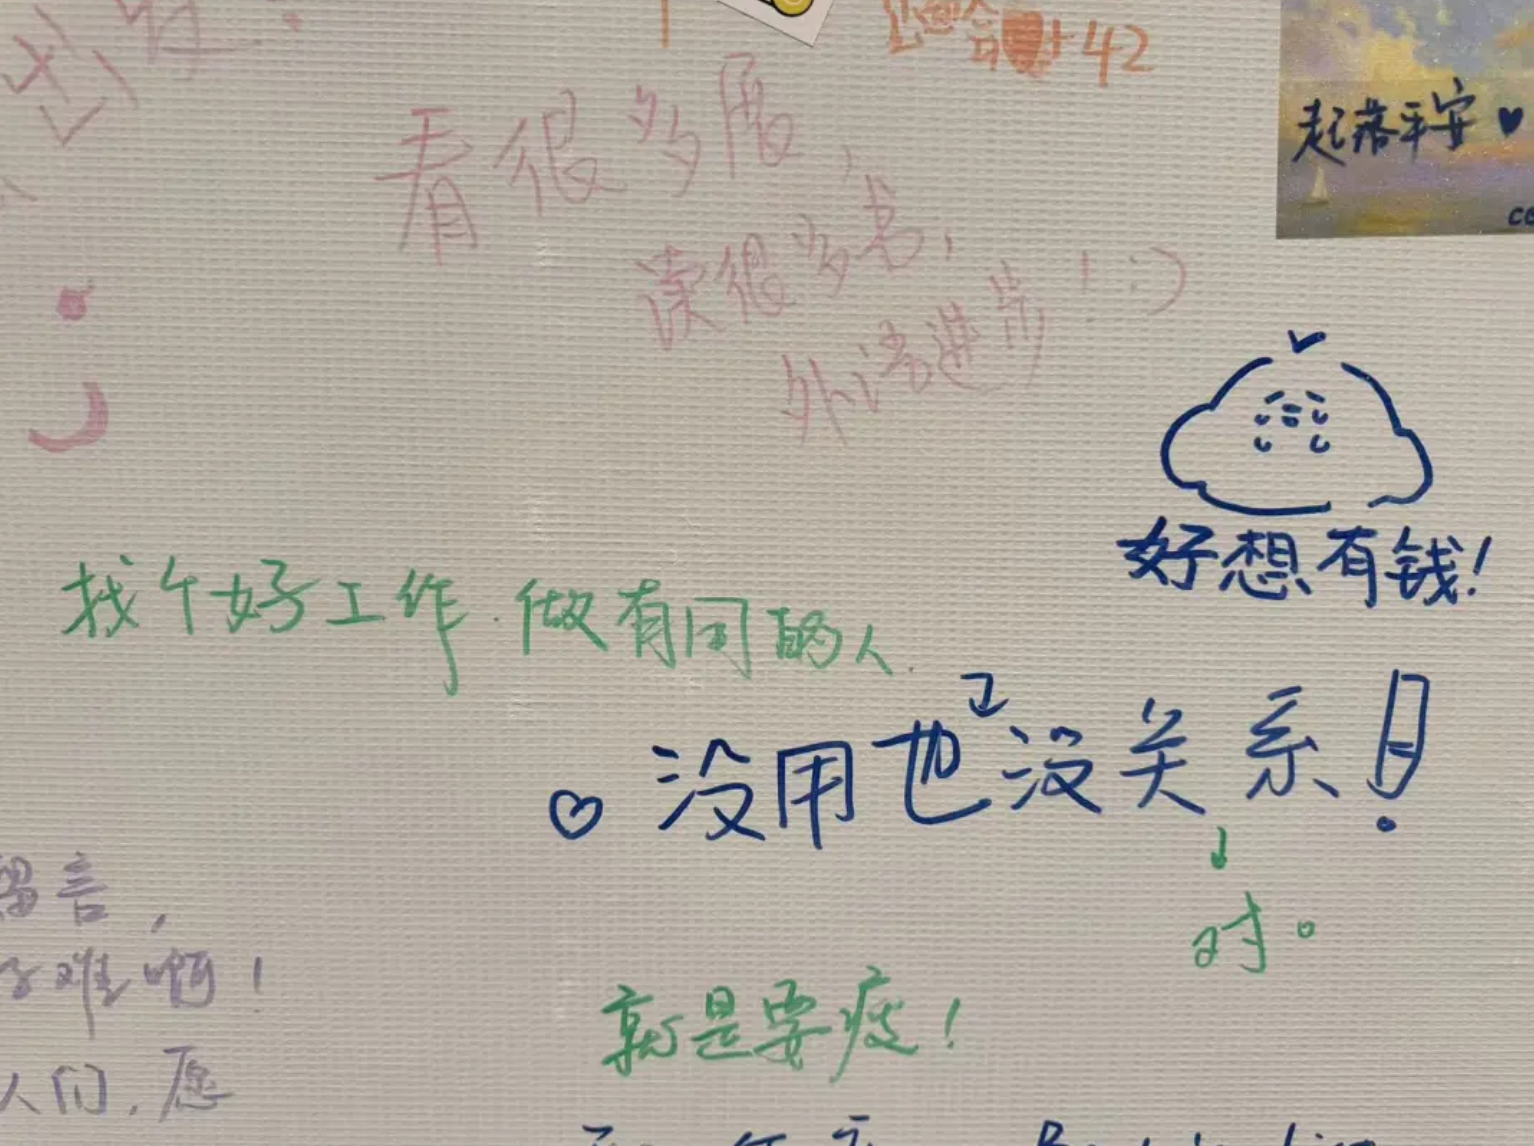 +42
起落平安
看很多展，
读很多书，
外语进步！:)
好想有钱！
找个好工作.做有用的人.
没用也没关系！
对。
就是要疲！
留言，
难啊！
人们，愿